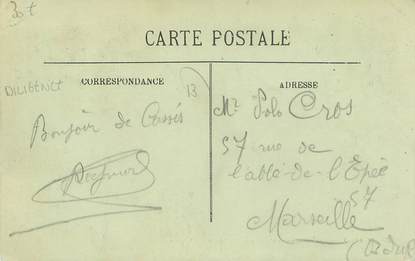 30 €
CARTE POSTALE
CORRESPONDANCE
ADRESSE
DILIGENCE
13
Bonjour de Cassis
Mr Polo Cros
57 rue de
l'abbé-de-l'Epée
57
Marseille